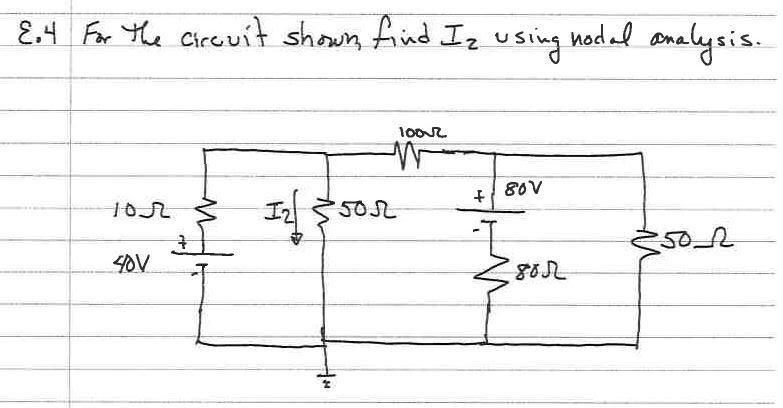 E.4 For the circuit shown, find I2 using nodal analysis.
100Ω
10Ω
I2
50Ω
+ 80V
-
50Ω
+
40V
-
80Ω